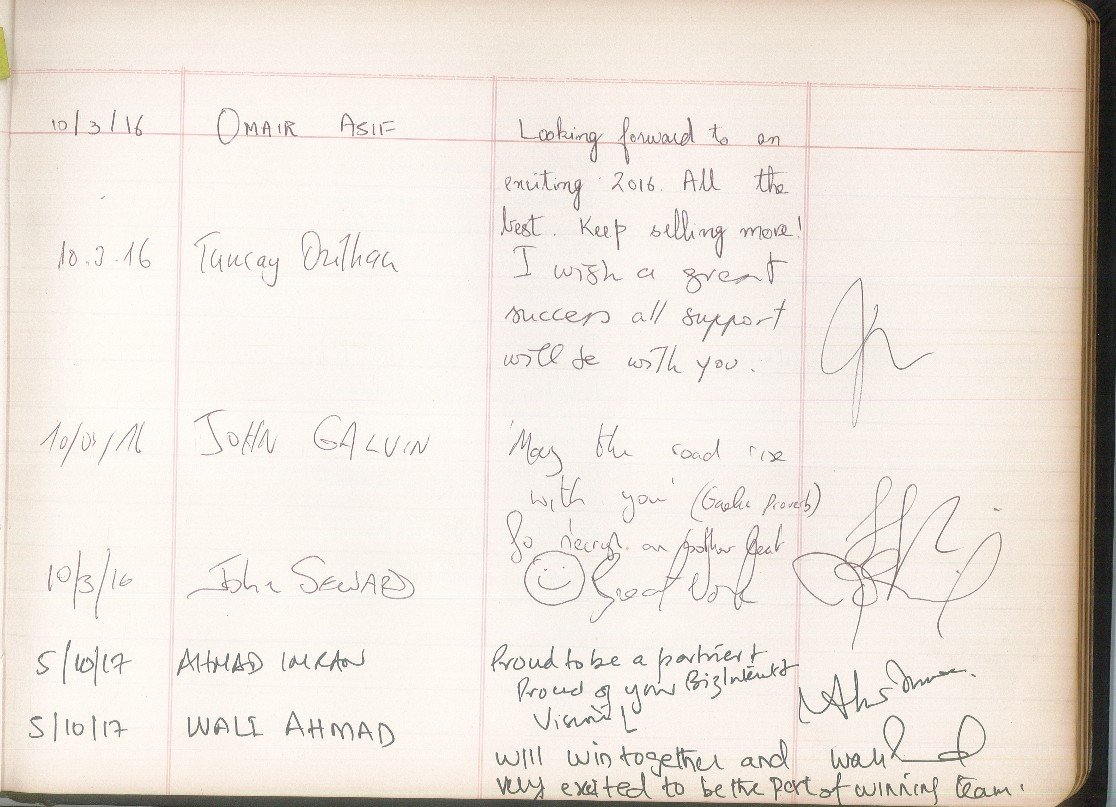 10/3/16 OMAIR ASIF Looking forward to an
exciting 2016. All the
best. Keep selling more!
10.3.16 Tuncay I wish a great
success all support
will be with you.
10/03/16 JOHN GALVIN 'May the road rise
with you' (Gaelic Proverb)
Go n-
10/3/16 John SEWARD Great Work
5/10/17 AHMAD IMRAN Proud to be a partner &
Proud of your
5/10/17 WALI AHMAD
Will win together and Wali
very excited to be the part of winning team.